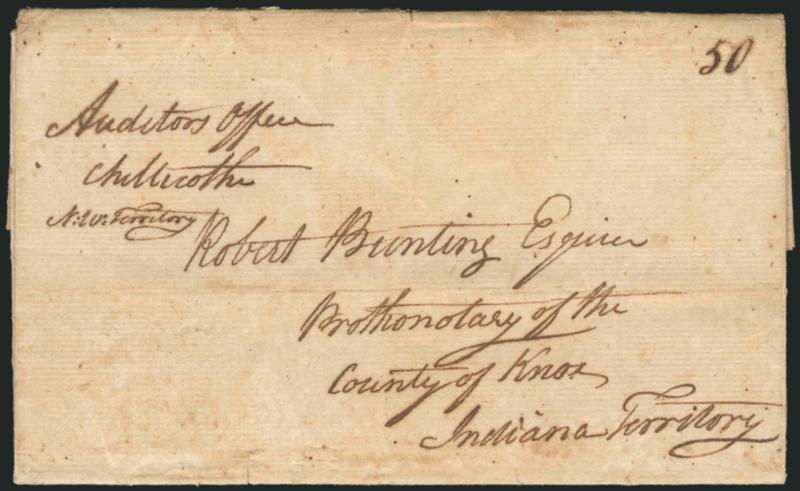 50
Auditors Office
Chillicothe
N: W: Territory
Robert Bunting Esquire
Prothonotary of the
County of Knox
Indiana Territory